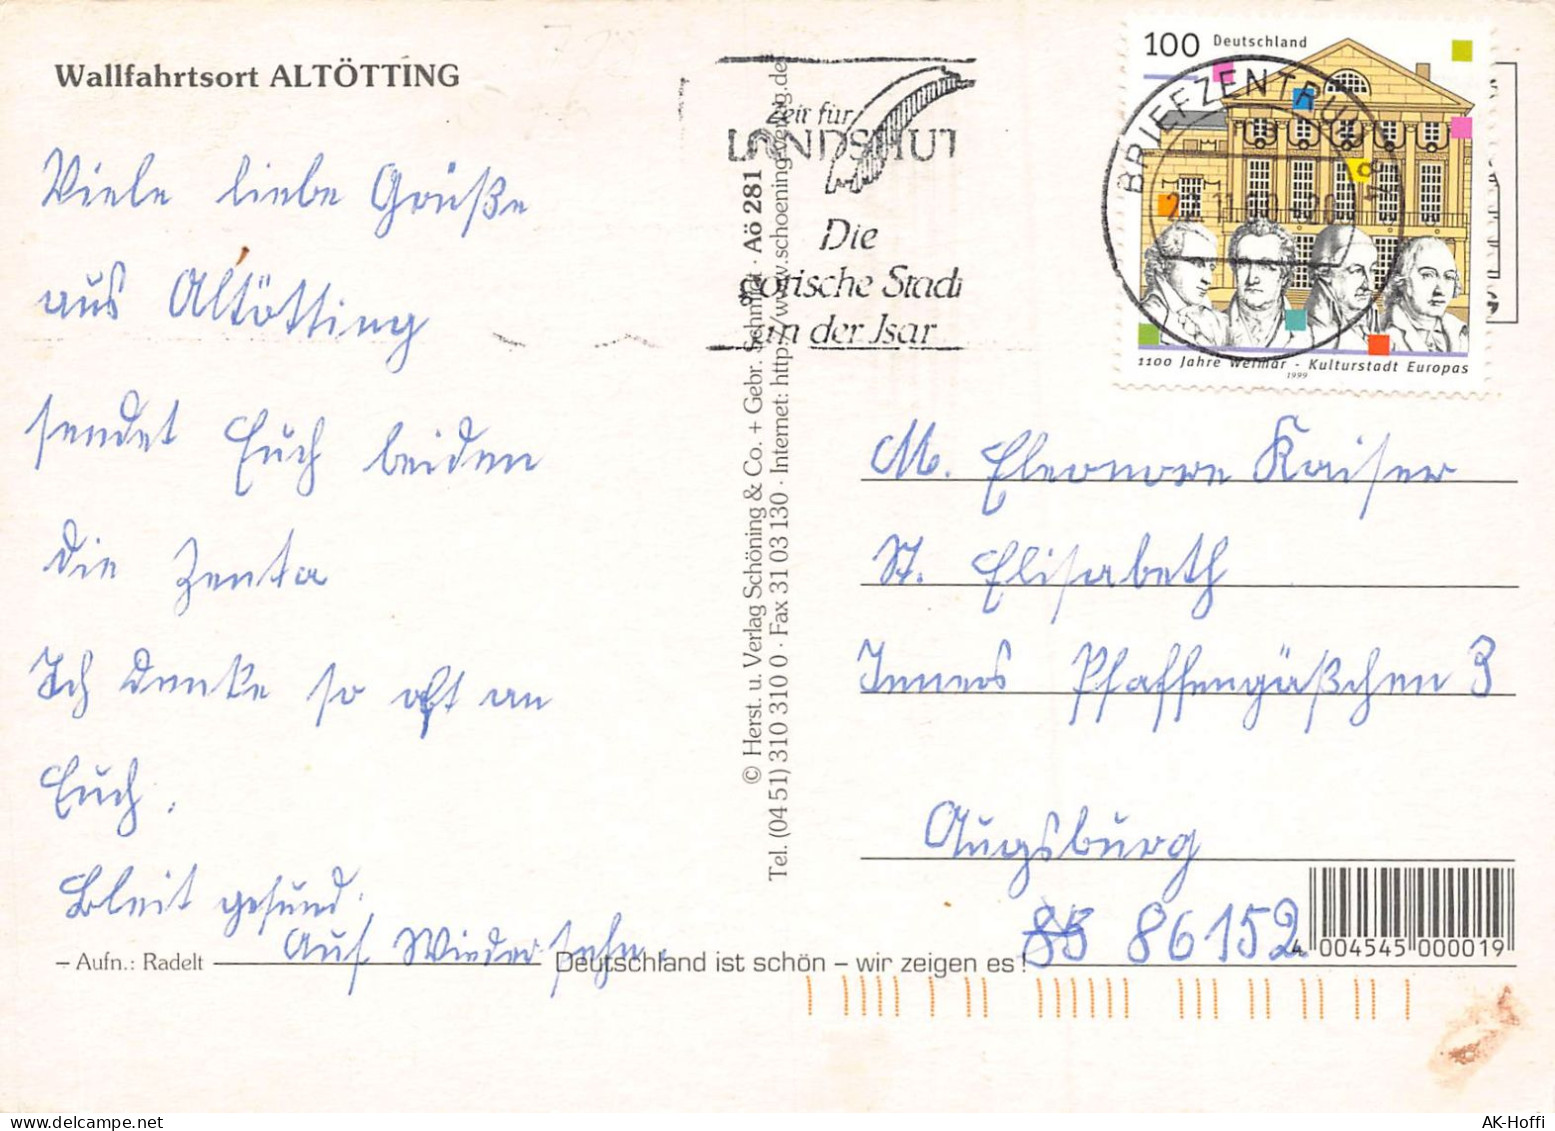 Wallfahrtsort ALTÖTTING
Viele liebe Grüße
aus Altötting
sendet Euch beiden
die Zenta
Ich denke so oft an
Euch.
Bleit gesund.
Auf Wiedersehn.
– Aufn.: Radelt
Deutschland ist schön – wir zeigen es!
© Herst. u. Verlag Schöning & Co. + Gebr. Schmidt · Aö 281
Tel. (04 51) 310 310 0 · Fax 31 03 130 · Internet: http://www.schoening-verlag.de
Zeit für
LANDSHUT
Die
gotische Stadt
an der Isar
100 Deutschland
1100 Jahre Weimar - Kulturstadt Europas
1999
BRIEFZENTRUM 84
M. Eleonore Kaiser
St. Elisabeth
Inneres Pfaffengäßchen 3
Augsburg
86152
4 004545 000019
AK-Hoffi